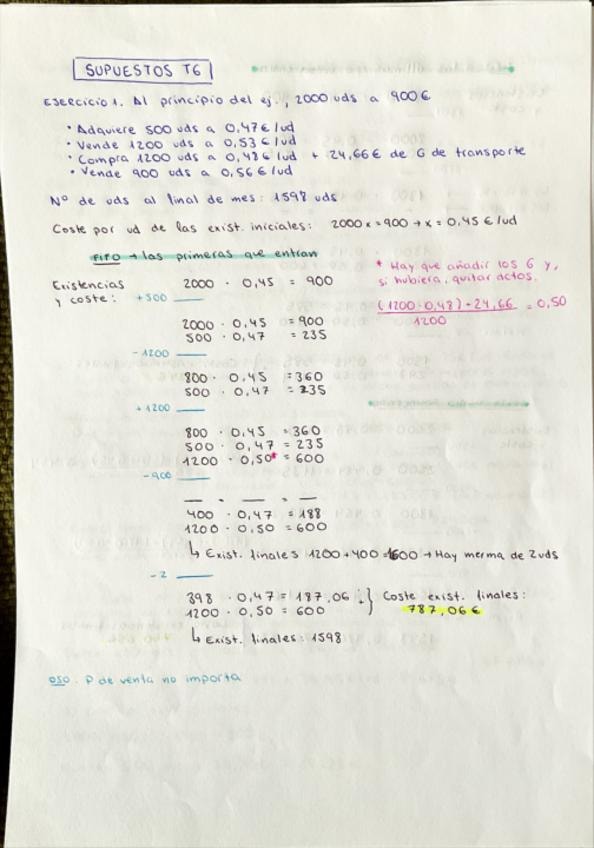 SUPUESTOS T6
EJERCICIO 1. Al principio del ej., 2000 uds a 900 €
• Adquiere 500 uds a 0,47 €/ud
• Vende 1200 uds a 0,53 €/ud
• Compra 1200 uds a 0,48 €/ud + 24,66 € de G de transporte
• Vende 900 uds a 0,56 €/ud
Nº de uds al final de mes: 1598 uds
Coste por ud de las exist. iniciales: 2000x = 900 → x = 0,45 €/ud
FIFO → las primeras que entran
* Hay que añadir los G y,
si hubiera, quitar dctos.
(1200 · 0,48) + 24,66 = 0,50
1200
Existencias
y coste:
2000 · 0,45 = 900
+500
2000 · 0,45 = 900
500 · 0,47 = 235
-1200
800 · 0,45 = 360
500 · 0,47 = 235
+1200
800 · 0,45 = 360
500 · 0,47 = 235
1200 · 0,50* = 600
-900
— · — = —
400 · 0,47 = 188
1200 · 0,50 = 600
↳ Exist. finales 1200 + 400 = 1600 → Hay merma de 2 uds
-2
398 · 0,47 = 187,06 + } Coste exist. finales:
1200 · 0,50 = 600 787,06 €
↳ Exist. finales: 1598
OSO. P de venta no importa